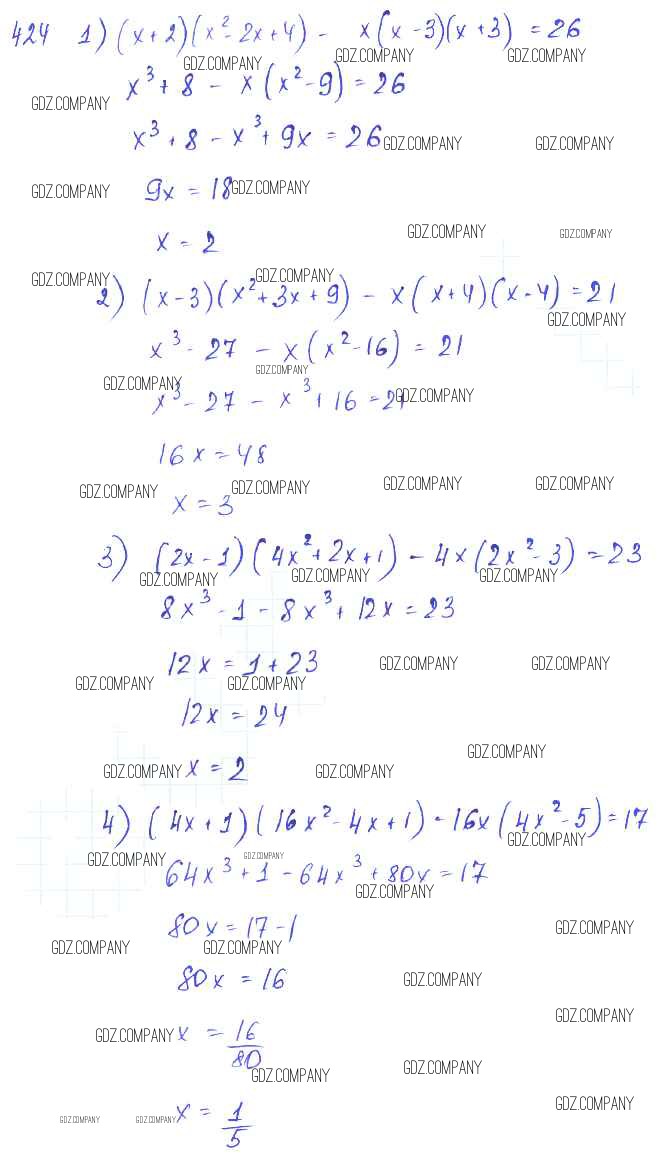 424 1) (x+2)(x²-2x+4) - x(x-3)(x+3) = 26
GDZ.COMPANY GDZ.COMPANY GDZ.COMPANY
x³+8 - x(x²-9) = 26
GDZ.COMPANY
x³+8-x³+9x = 26 GDZ.COMPANY GDZ.COMPANY
GDZ.COMPANY 9x = 18 GDZ.COMPANY
GDZ.COMPANY GDZ.COMPANY
x = 2
GDZ.COMPANY GDZ.COMPANY
2) (x-3)(x²+3x+9) - x(x+4)(x-4) = 21
GDZ.COMPANY
x³-27 - x(x²-16) = 21
GDZ.COMPANY
GDZ.COMPANY GDZ.COMPANY
x³-27 - x³+16 = 21
16x = 48
GDZ.COMPANY GDZ.COMPANY GDZ.COMPANY GDZ.COMPANY
x = 3
3) (2x-1)(4x²+2x+1) - 4x(2x²-3) = 23
GDZ.COMPANY GDZ.COMPANY GDZ.COMPANY
8x³-1-8x³+12x = 23
12x = 1+23 GDZ.COMPANY GDZ.COMPANY
GDZ.COMPANY GDZ.COMPANY
12x = 24
GDZ.COMPANY
GDZ.COMPANY x = 2 GDZ.COMPANY
4) (4x+1)(16x²-4x+1) - 16x(4x²-5) = 17
GDZ.COMPANY
GDZ.COMPANY GDZ.COMPANY
64x³+1-64x³+80x = 17
GDZ.COMPANY
80x = 17-1 GDZ.COMPANY
GDZ.COMPANY GDZ.COMPANY
80x = 16 GDZ.COMPANY
GDZ.COMPANY
GDZ.COMPANY x = 16/80
GDZ.COMPANY GDZ.COMPANY
GDZ.COMPANY
GDZ.COMPANY GDZ.COMPANY x = 1/5